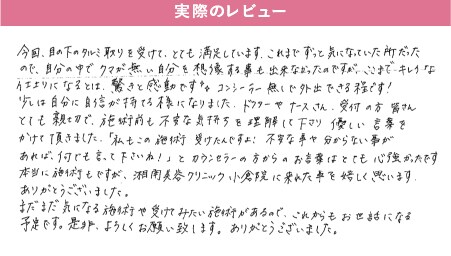 実際のレビュー
今回、目の下のタルミ取りを受けて、とても満足しています。これまでずっと気になっていた所だった
ので、自分の中でクマが無い自分を想像する事も出来なかったのですが、ここまでキレイな
仕上りになるとは、驚きと感動です。コンシーラー無しで外出できる程です!
少しは自分に自信が持てる様になりました。ドクターやナースさん、受付の方皆さん
とても親切で、施術前も不安な気持ちを理解して下さり優しい言葉を
かけて頂きました。「私もこの施術受けたんですよ!不安な事や分からない事が
あれば、何でも言って下さいね!」とカウンセラーの方からのお言葉はとても心強かったです
本当に施術もですが、湘南美容クリニック小倉院に来れた事を嬉しく思います。
ありがとうございました。
まだまだ気になる施術や受けてみたい施術があるので、これからもお世話になる
予定です。是非、よろしくお願い致します。ありがとうございました。